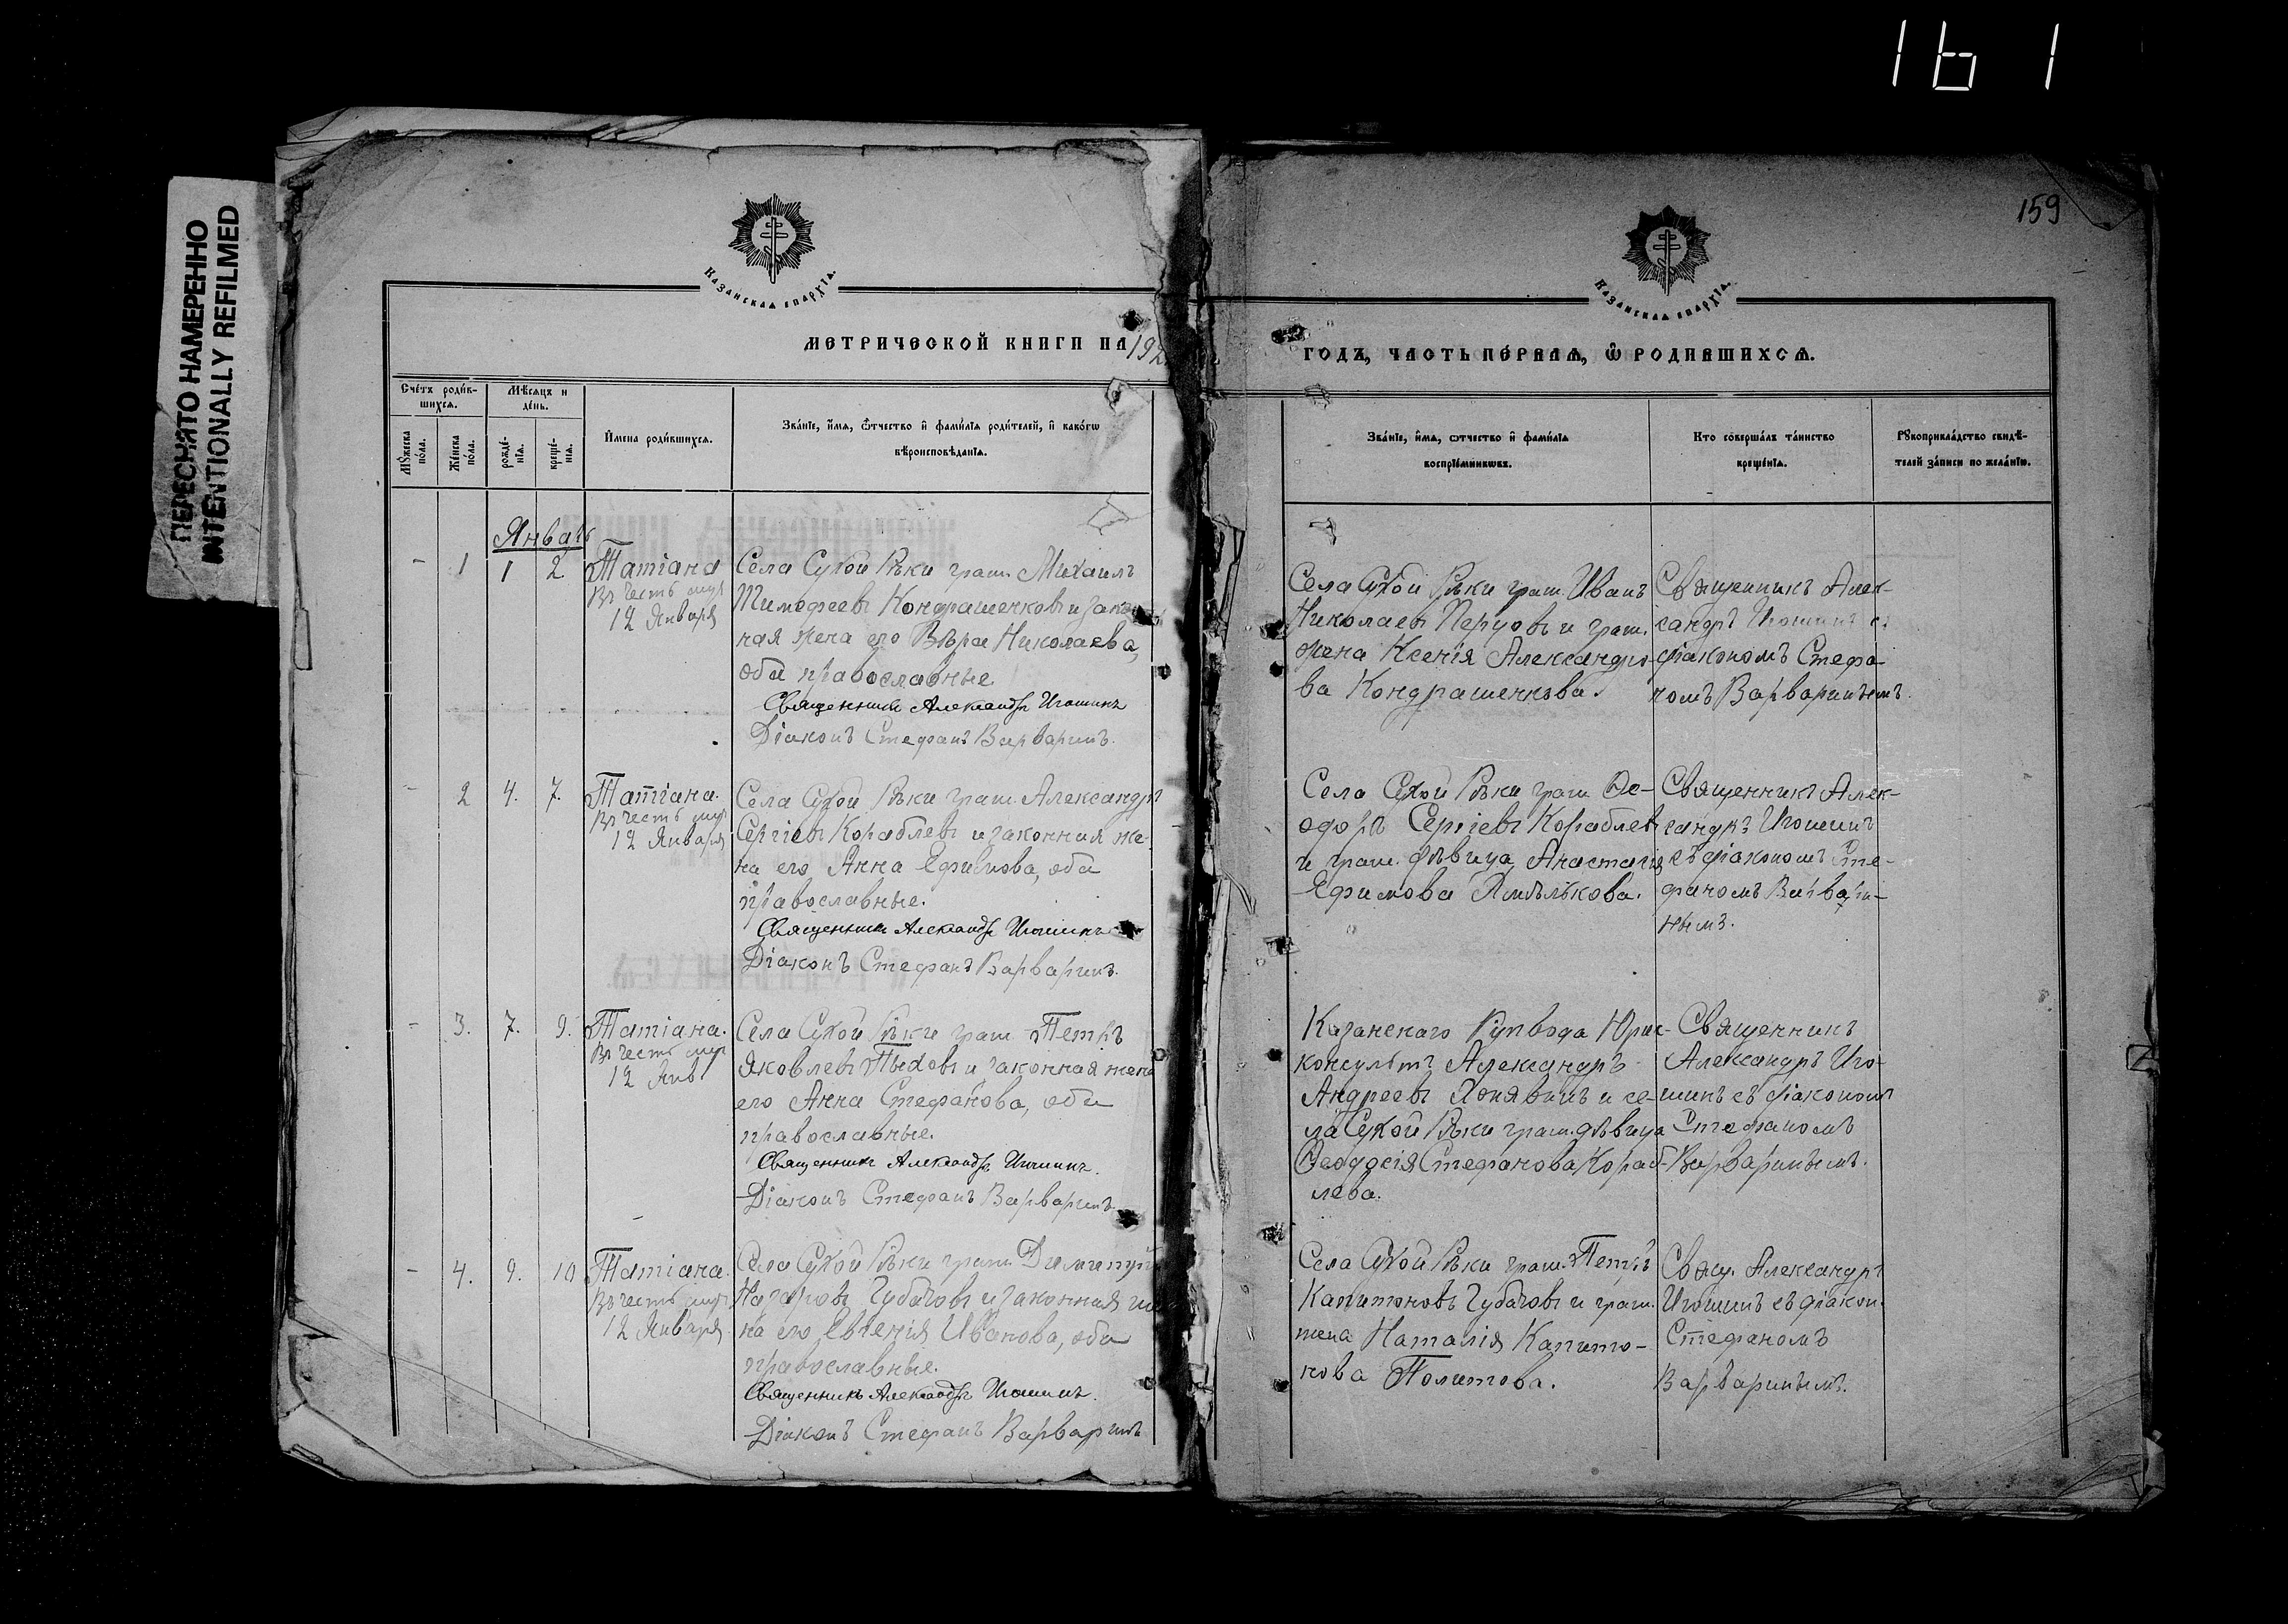 161
ПЕРЕСНЯТО НАМЕРЕННО
INTENTIONALLY REFILMED
159
Казанская епархїа.
Казанская епархїа.
МЕТРИЧЕСКОЙ КНИГИ НА 192
ГОДЪ, ЧАСТЬ ПЕРВАЯ, Ѿ РОДИВШИХСЯ.
Сче́тъ роди́в-
шихся.
Мѣ́сяцъ и
де́нь.
Мꙋ́жеска
по́ла.
Же́нска
по́ла.
рожде́-
нїя.
креще́-
нїя.
И҆мена роди́вшихся.
Зва́нїе, и҆́мя, ѻ҆́тчество и҆ фами́лїя роди́телей, и҆ како́гѡ
вѣроисповѣ́данїя.
Зва́нїе, и҆́мя, ѻ҆́тчество и҆ фами́лїя
воспрїе́мникѡвъ.
Кто соверша́лъ та́инство
креще́нїя.
Рꙋкоприкла́дство свидѣ́-
телей за́писи по жела́нїю.
Январь
- 1 1 2 Татіана
Въ честь муч
12 Января
Села Сухой Рѣки граж. Михаилъ
Тимофеевъ Кондрашенковъ и закон
ная жена его Вѣра Николаева,
оба православные.
Священникъ Александръ Игошинъ
Діаконъ Стефанъ Варваринъ.
Села Сухой Рѣки граж. Иванъ
Николаевъ Перцовъ и граж.
жена Ксенія Александро-
ва Кондрашенкова.
Священникъ Алек-
сандръ Игошинъ с
діакономъ Стефа-
номъ Варваринымъ.
- 2 4. 7. Татіана.
Въ честь муч
12 Января
Села Сухой Рѣки граж. Александръ
Сергіевъ Кораблевъ и законная же-
на его Анна Ефимова, оба
православные.
Священникъ Александръ Игошинъ
Діаконъ Стефанъ Варваринъ.
Села Сухой Рѣки граж. Ѳе-
одоръ Сергіевъ Кораблевъ
и граж. дѣвица Анастасія
Ефимова
Священникъ Алек-
сандръ Игошинъ
съ діакономъ Сте-
фаномъ Варвари-
нымъ.
- 3. 7. 9. Татіана.
Въ честь муч
12 Янв
Села Сухой Рѣки граж. Петръ
Яковлевъ Пыховъ и законная жена
его Анна Стефанова, оба
православные.
Священникъ Александръ Игошинъ.
Діаконъ Стефанъ Варваринъ.
Казанского Юрис-
консультъ Александръ
Андреевъ и се-
ла Сухой Рѣки граж. дѣвица
Ѳеодосія Стефанова Кораб-
лева.
Священникъ
Александръ Иго-
шинъ съ діакономъ
Стефаномъ
Варваринымъ.
- 4. 9. 10 Татіана.
Въ честь муч
12 Января
Села Сухой Рѣки граж. Димитрій
Назаровъ Губачовъ и законная же
на его Евгенія Иванова, оба
православные.
Священникъ Александръ Игошинъ.
Діаконъ Стефанъ Варваринъ
Села Сухой Рѣки граж. Петръ
Капитоновъ Губачовъ и граж.
жена Наталія Капито-
нова Политова.
Свящ. Александръ
Игошинъ съ діакон.
Стефаномъ
Варваринымъ.